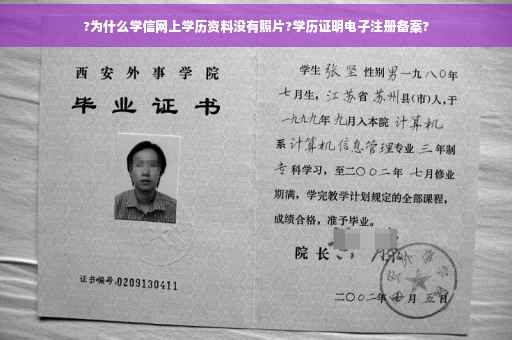 ?为什么学信网上学历资料没有照片?学历证明电子注册备案?
西安外事学院
毕业证书
证书编号:0209130411
学生张坚性别男一九八〇年
七月生,江苏省苏州县(市)人,于
一九九九年九月入本院计算机
系计算机信息管理专业三年制
专科学习,至二〇〇二年七月修业
期满,学完教学计划规定的全部课程,
成绩合格,准予毕业。
院长
二〇〇二年 月五日